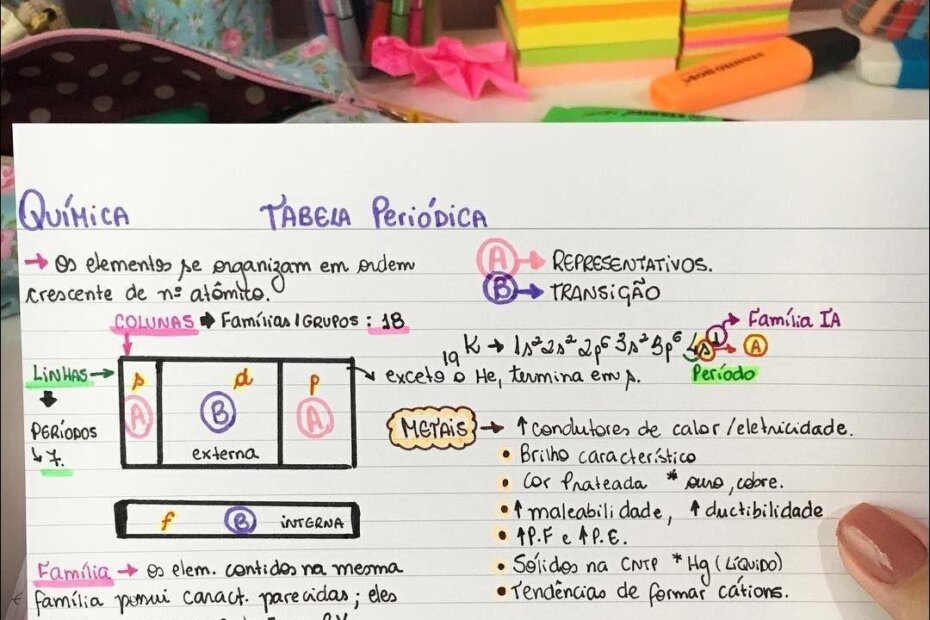 QUÍMICA
TABELA PERIÓDICA
→ Os elementos se organizam em ordem
crescente de nº atômico.
COLUNAS → Famílias/GRUPOS : 18
LINHAS →
PERÍODOS
↳ 7.
s
d
p
A
B
A
externa
→ exceto o He, termina em s.
f
B
INTERNA
Família → os elem. contidos na mesma
família possui caract. parecidas; eles
A → REPRESENTATIVOS.
B → TRANSIÇÃO
→ Família IA
19K → 1s² 2s² 2p⁶ 3s² 3p⁶ 4s¹ → A
Período
METAIS → ↑ condutores de calor/eletricidade.
• Brilho característico
• Cor Prateada * ouro, cobre.
• ↑ maleabilidade, ↑ ductibilidade
• ↑P.F e ↑P.E.
• Sólidos na CNTP * Hg (LÍQUIDO)
• Tendências de formar cátions.